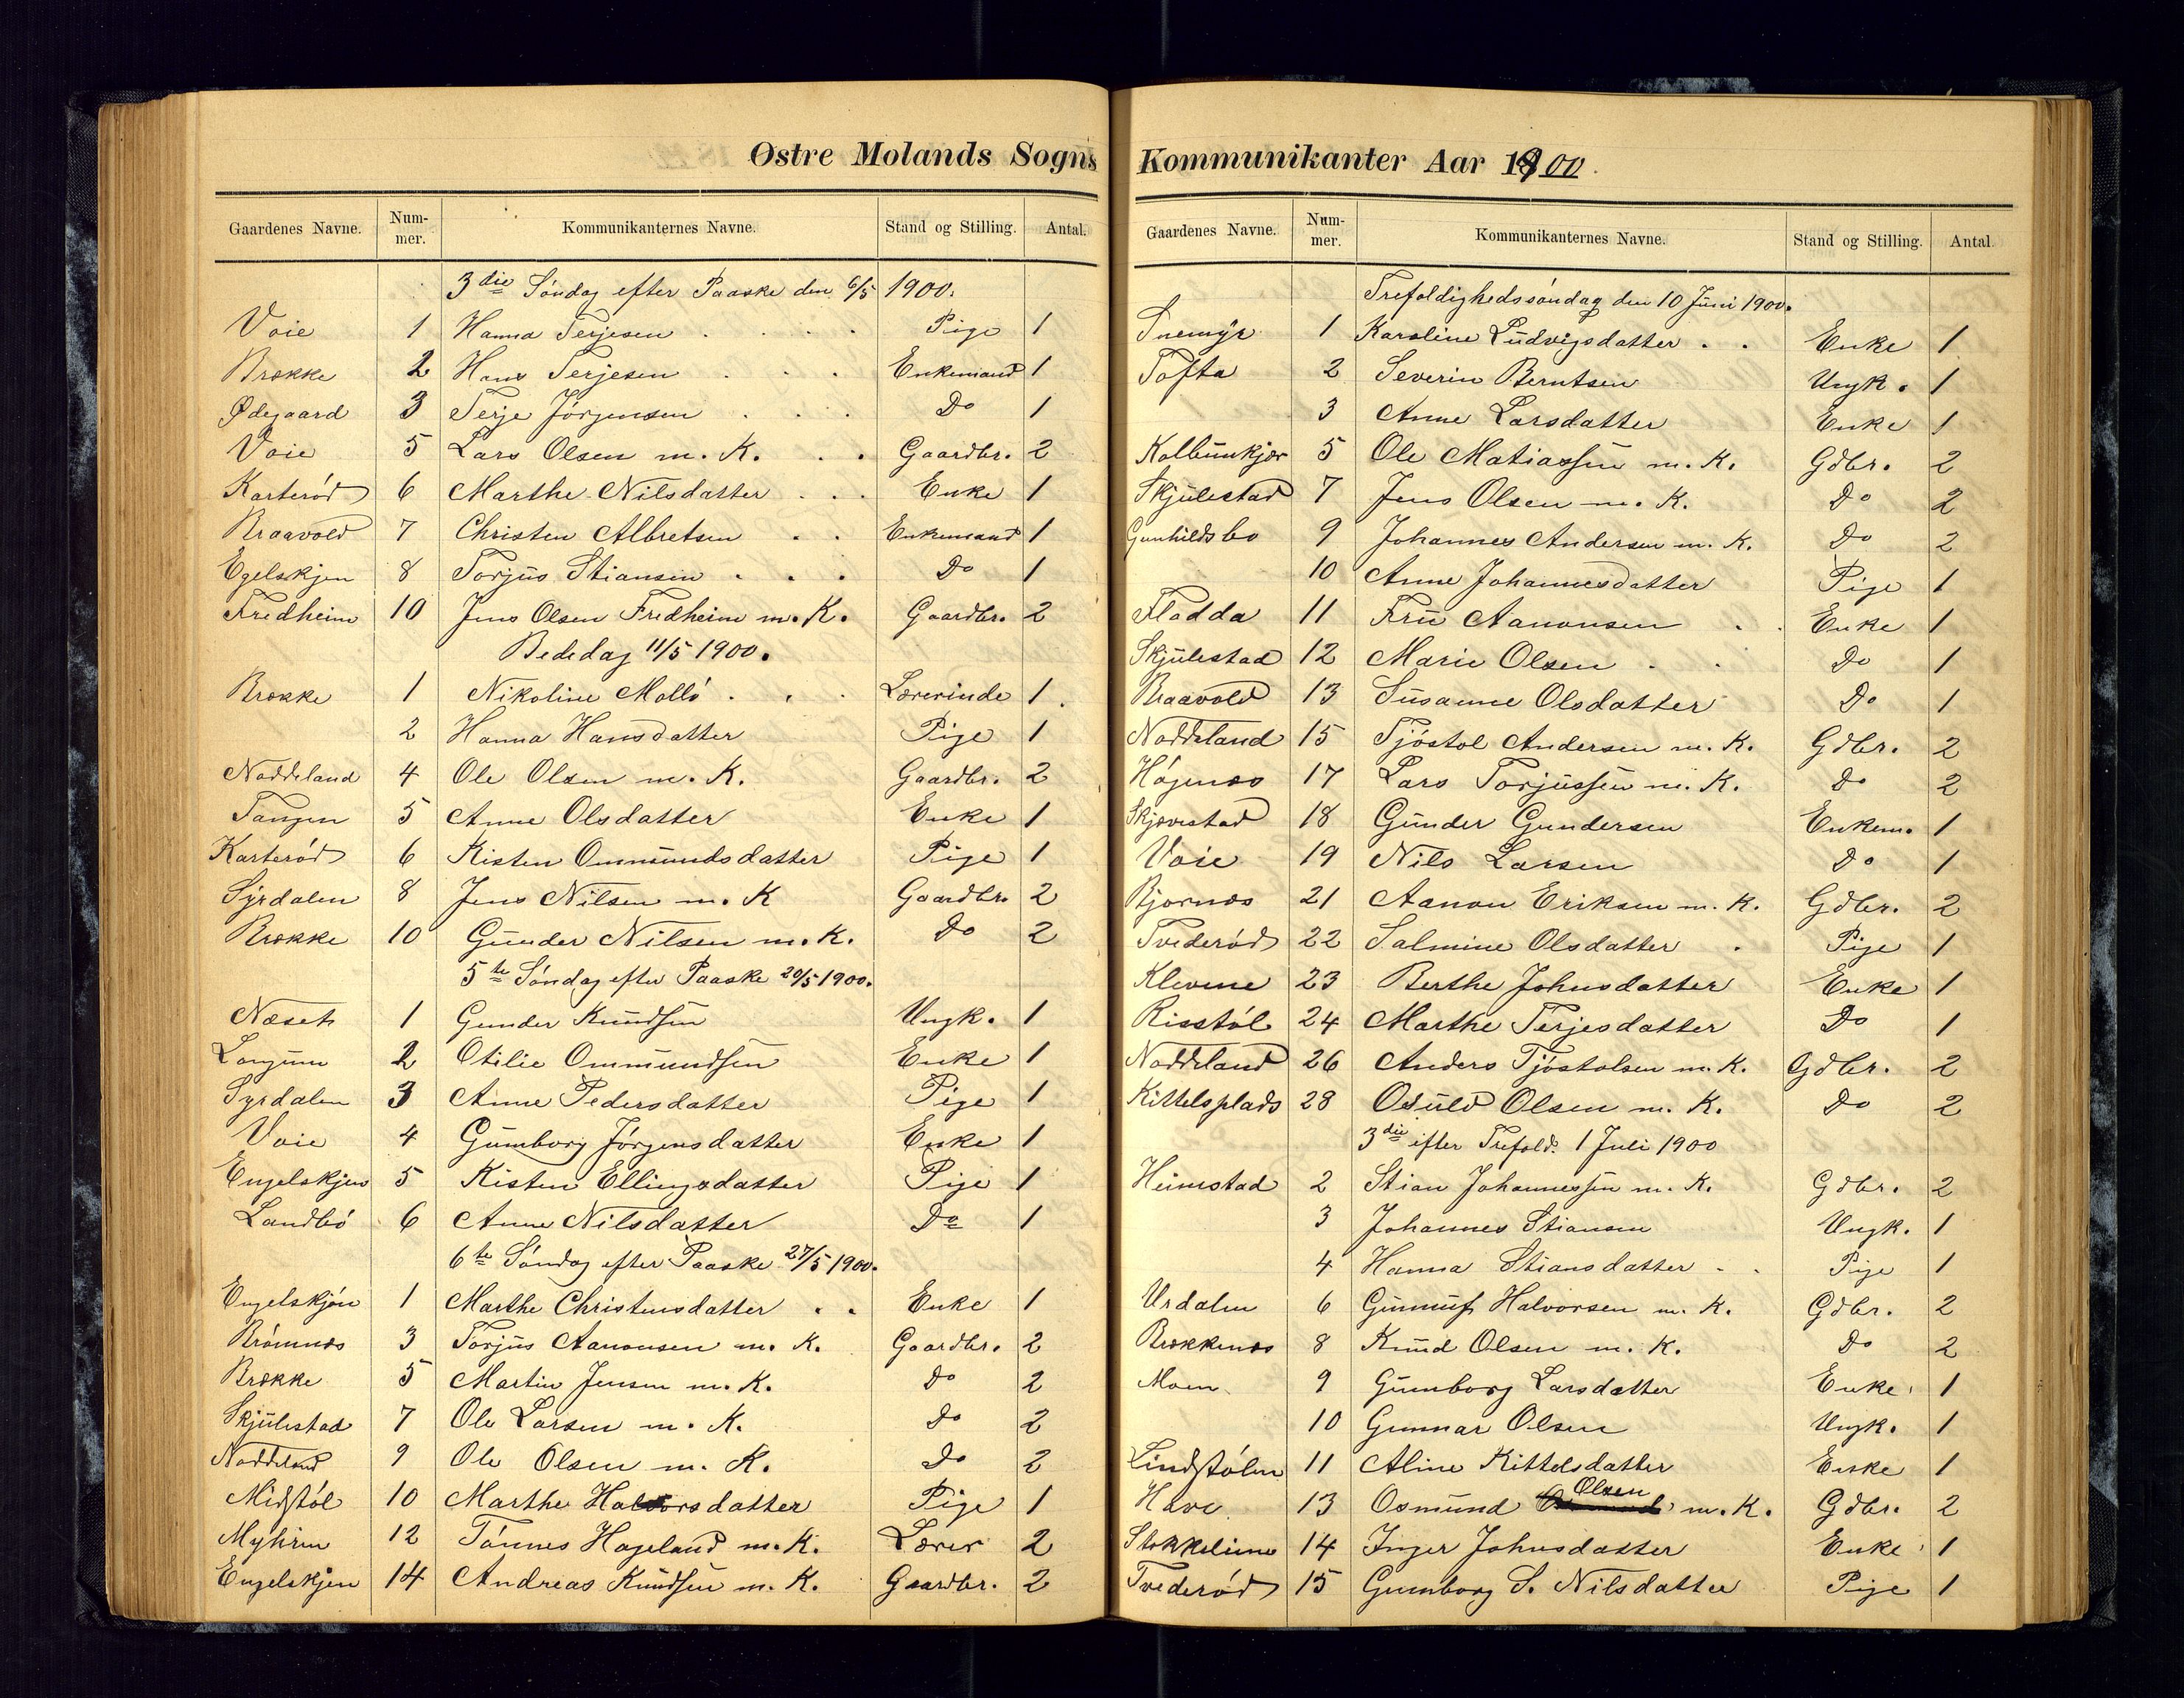 Østre Molands Sogns
Gaardenes Navne. Num-mer. Kommunikanternes Navne. Stand og Stilling. Antal.
3die Søndag efter Paaske den 6/5 1900.
Voie 1 Hanna Terjesen Pige 1
Brække 2 Hans Terjesen Enkemand 1
Ødegaard 3 Terje Jørgensen Do 1
Voie 5 Lars Olsen m. K. Gaardbr. 2
Karterød 6 Marthe Nilsdatter Enke 1
Braavold 7 Christen Albretsen Enkemand 1
Egelskjen 8 Torjus Stiansen Do 1
Fredheim 10 Jens Olsen Fredheim m. K. Gaardbr. 2
Bededag 11/5 1900.
Brække 1 Nikoline Mollö Lærerinde 1
2 Hanna Hansdatter Pige 1
Naddeland 4 Ole Olsen m. K. Gaardbr. 2
Tangen 5 Anne Olsdatter Enke 1
Karterød 6 Kisten Ommundsdatter Pige 1
Syrdalen 8 Jens Nilsen m. K Gaardbr. 2
Brække 10 Gunder Nilsen m. K. Do 2
5te Søndag efter Paaske 20/5 1900.
Næset 1 Gunder Knudsen Ungk. 1
Langum 2 Otilie Ommundsen Enke 1
Syrdalen 3 Anne Pedersdatter Pige 1
Voie 4 Gumborg Jørgensdatter Enke 1
Engelskjen 5 Kisten Ellingsdatter Pige 1
Landbö 6 Anne Nilsdatter Do 1
6te Søndag efter Paaske 27/5 1900.
Engelskjøn 1 Marthe Christensdatter Enke 1
Brömnes 3 Torjus Aanonsen m. K. Gaardbr. 2
Brække 5 Martin Jensen m. K. Do 2
Skjulestad 7 Ole Larsen m. K. Do 2
Naddeland 9 Ole Olsen m. K. Do 2
Midstøl 10 Marthe Halvorsdatter Pige 1
Myhren 12 Tönnes Hageland m. K. Lærer 2
Engelskjen 14 Andreas Knudsen m. K. Gaardbr. 2
Kommunikanter Aar 1900.
Gaardenes Navne. Num-mer. Kommunikanternes Navne. Stand og Stilling. Antal.
Trefoldighedssøndag den 10 Juni 1900.
Snemyr 1 Karoline Ludvigsdatter Enke 1
Tofta 2 Severin Berntsen Ungk. 1
3 Anne Larsdatter Enke 1
Kalbunkjær 5 Ole Matiassen m. K. Gdbr. 2
Skjulestad 7 Jens Olsen m. K. Do 2
Gunhildsbo 9 Johannes Andersen m. K. Do 2
10 Anne Johannesdatter Pige 1
Fladda 11 Fru Aanonsen Enke 1
Skjulestad 12 Marie Olsen Do 1
Braavold 13 Susanne Olsdatter Do 1
Naddeland 15 Tjöstol Andersen m. K. Gdbr. 2
Högenæs 17 Lars Torjussen m. K. Do 2
Skjævestad 18 Gunder Gundersen Enkem. 1
Voie 19 Nils Larsen Do 1
Bjornæs 21 Aanon Eriksen m. K. Gdbr. 2
Tvederød 22 Salmine Olsdatter Pige 1
Klevene 23 Berthe Johnsdatter Enke 1
Risstöl 24 Marthe Terjesdatter Do 1
Naddeland 26 Anders Tjöstolsen m. K. Gdbr. 2
Kittelsplads 28 Osuld Olsen m. K. Do 2
3die efter Trefold. 1 Juli 1900
Heimestad 2 Stian Johannessen m. K. Gdbr. 2
3 Johannes Stiansen Ungk. 1
4 Hanna Stiansdatter Pige 1
Urdalen 6 Gunnuf Halvorsen m. K. Gdbr. 2
Brækkenæs 8 Knud Olsen m. K. Do 2
Moen 9 Gumborg Larsdatter Enke 1
10 Gunnar Olsen Ungk. 1
Lindstølen 11 Aline Kittelsdatter Enke 1
Have 13 Osmund Olsen m. K. Gdbr. 2
Stokkelinne 14 Inger Johnsdatter Enke 1
Tvederød 15 Gumborg S. Nilsdatter Pige 1